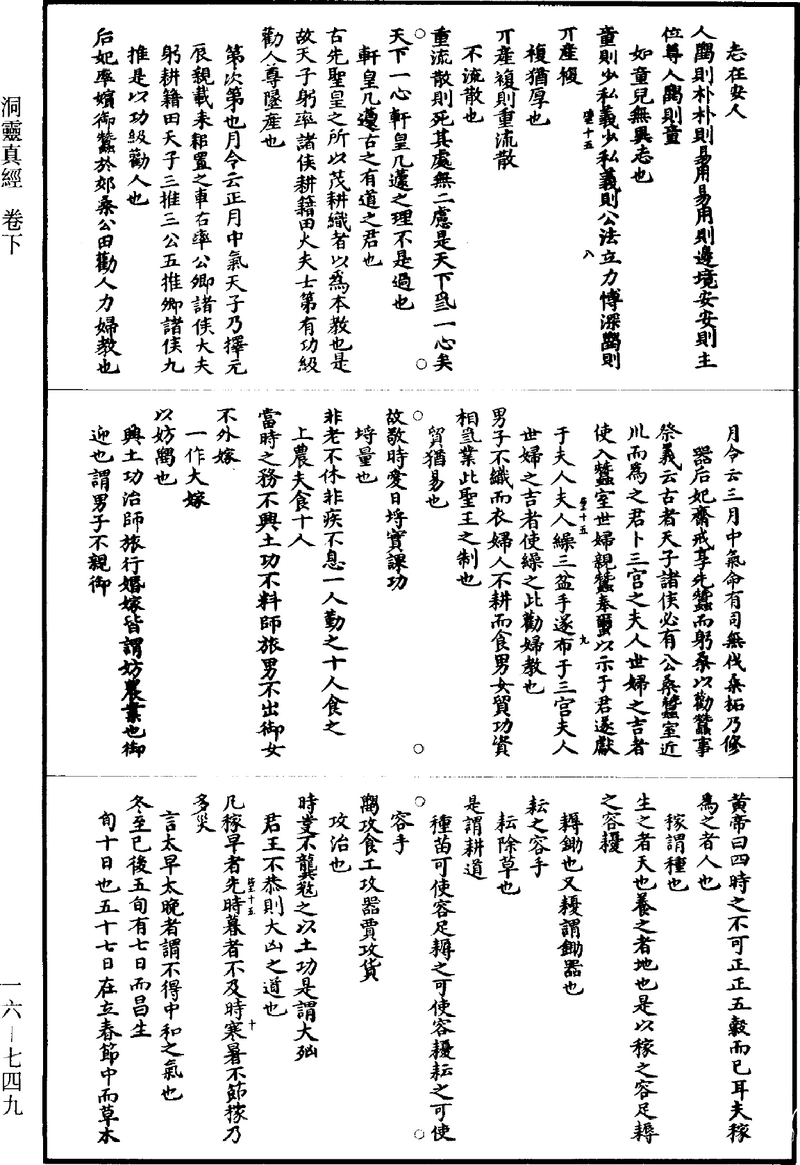 志在安人
人農則朴朴則易用易用則邊境安安則主
位尊人農則童
如童兒無異志也
童則少私義少私義則公法立力博深農則
丌産複
複猶厚也
丌産複則重流散
不流散也
重流散則死其處無二慮是天下爲一心矣
天下一心軒皇几蘧之理不是過也
軒皇几蘧古之有道之君也
古先聖皇之所以茂耕織者以爲本教也是
故天子躬率諸侯耕籍田大夫士第有功級
勸人尊墬産也
第次第也月令云正月中氣天子乃擇元
辰親載耒耜置之車右率公卿諸侯大夫
躬耕籍田天子三推三公五推卿諸侯九
推是以功級勸人也
后妃率嬪御蠶於郊桑公田勸人力婦教也
月令云三月中氣命有司無伐桑柘乃修
器后妃齋戒享先蠶而躬桑以勸蠶事
祭義云古者天子諸侯必有公桑蠶室近
川而爲之君卜三宮之夫人世婦之吉者
使入蠶室世婦親蠶奉繭以示于君遂獻
于夫人夫人繰三盆手遂布于三宮夫人
世婦之吉者使繰之此勸婦教也
男子不織而衣婦人不耕而食男女貿功資
相爲業此聖王之制也
貿猶易也
故敬時愛日埒實課功
埒量也
非老不休非疾不息一人勤之十人食之
上農夫食十人
當時之務不興土功不料師旅男不出御女
不外嫁
一作大嫁
以妨農也
興土功治師旅行婚嫁皆謂妨農業也御
迎也謂男子不親御
黄帝曰四時之不可正正五穀而已耳夫稼
爲之者人也
稼謂種也
生之者天也養之者地也是以稼之容足耨
之容耰
耨鋤也又耰謂鋤器也
耘之容手
耘除草也
是謂耕道
種苗可使容足耨之可使容耰耘之可使
容手
農攻食工攻器賈攻貨
攻治也
時叓不龔敚之以土功是謂大㐫
君王不恭則大凶之道也
凡稼早者先時暮者不及時寒暑不節稼乃
多災
言太早太晚者謂不得中和之氣也
冬至已後五旬有七日而昌生
旬十日也五十七日在立春節中而草木
洞靈真經 卷下
一六—七四九